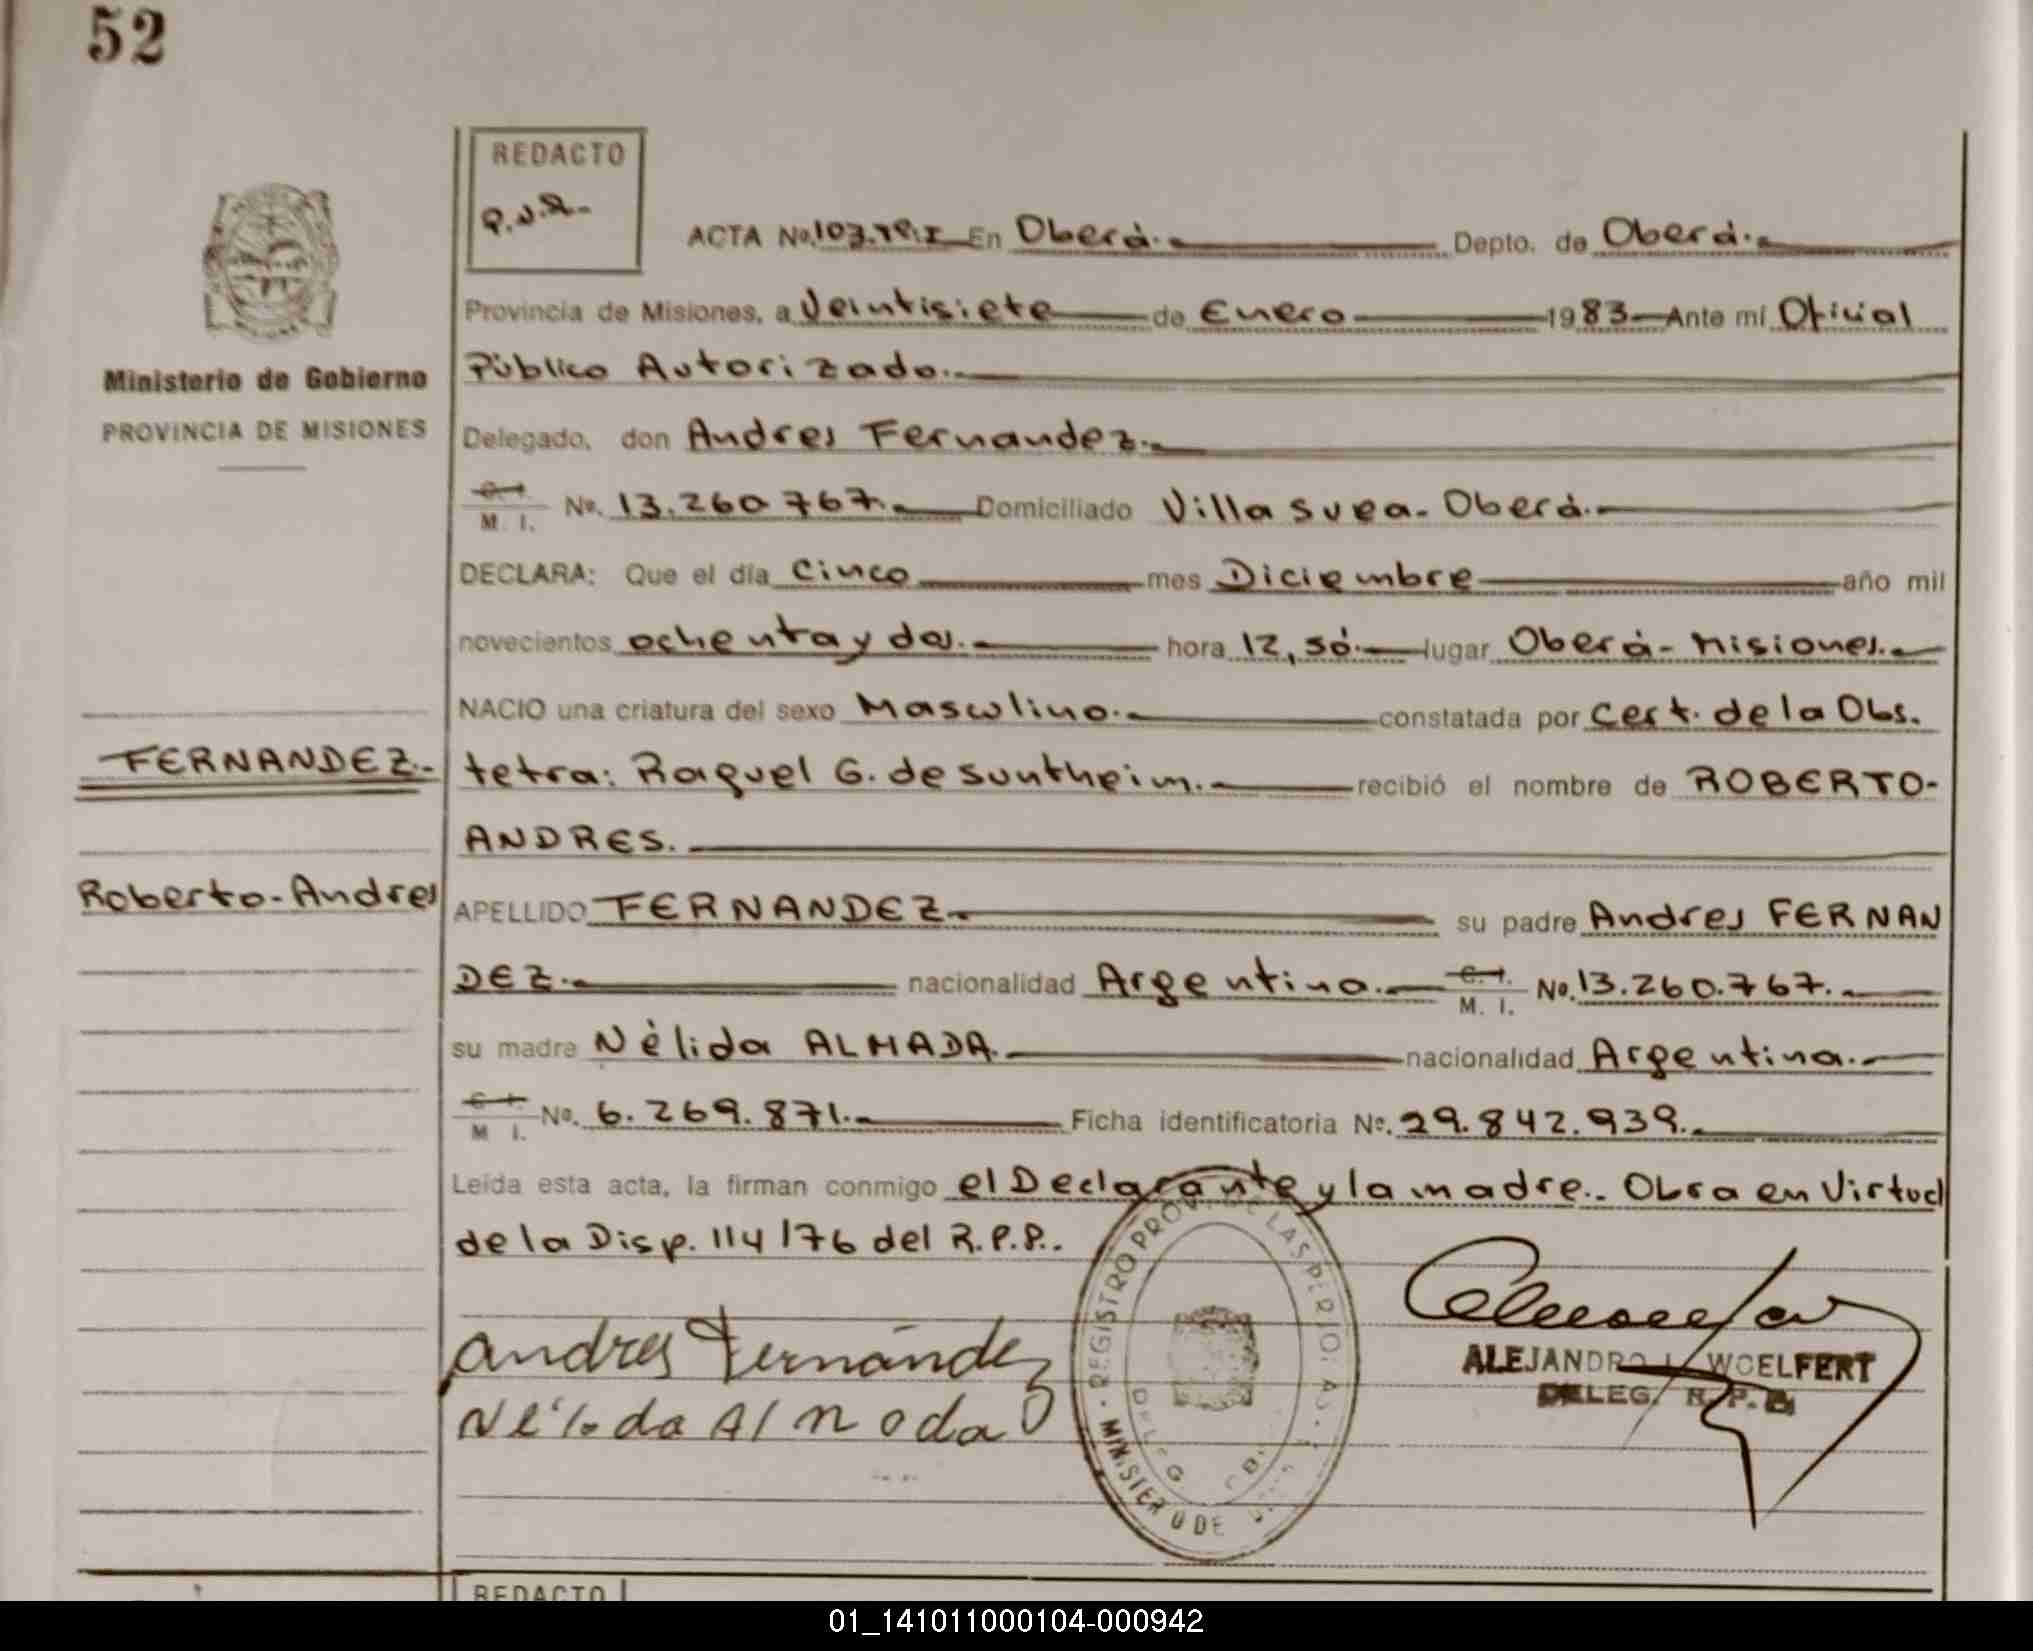 52
REDACTO
ACTA No. 103.Tº.I En Oberá. Depto. de Oberá.
Provincia de Misiones, a Veintisiete de Enero 1983 Ante mí Oficial
Público Autorizado.
Ministerio de Gobierno
PROVINCIA DE MISIONES
Delegado, don Andres Fernandez.
C. I. M. I. No. 13.260.767. Domiciliado Villa Svea. Oberá.
DECLARA: Que el día Cinco mes Diciembre año mil
novecientos ochenta y dos. hora 12,50. lugar Oberá - Misiones.
NACIO una criatura del sexo Masculino. constatada por Cert. de la Obs.
FERNANDEZ.
tetra: Raquel G. de Suntheim. recibió el nombre de ROBERTO-
ANDRES.
Roberto-Andres
APELLIDO FERNANDEZ. su padre Andres FERNAN
DEZ. nacionalidad Argentina. C. I. M. I. No. 13.260.767.
su madre Nélida ALMADA. nacionalidad Argentina.
C. I. M I. No. 6.269.871. Ficha identificatoria No. 29.842.939.
Leída esta acta, la firman conmigo el Declarante y la madre. Obra en Virtud
de la Disp. 114/76 del R.P.P..
REGISTRO PROV. DE LAS PER
MINISTER O DE
DELEG
Andres Fernández
Nélida Almada
ALEJANDRO WOELFERT
DELEG. R. P.
REDACTO
01_141011000104-000942